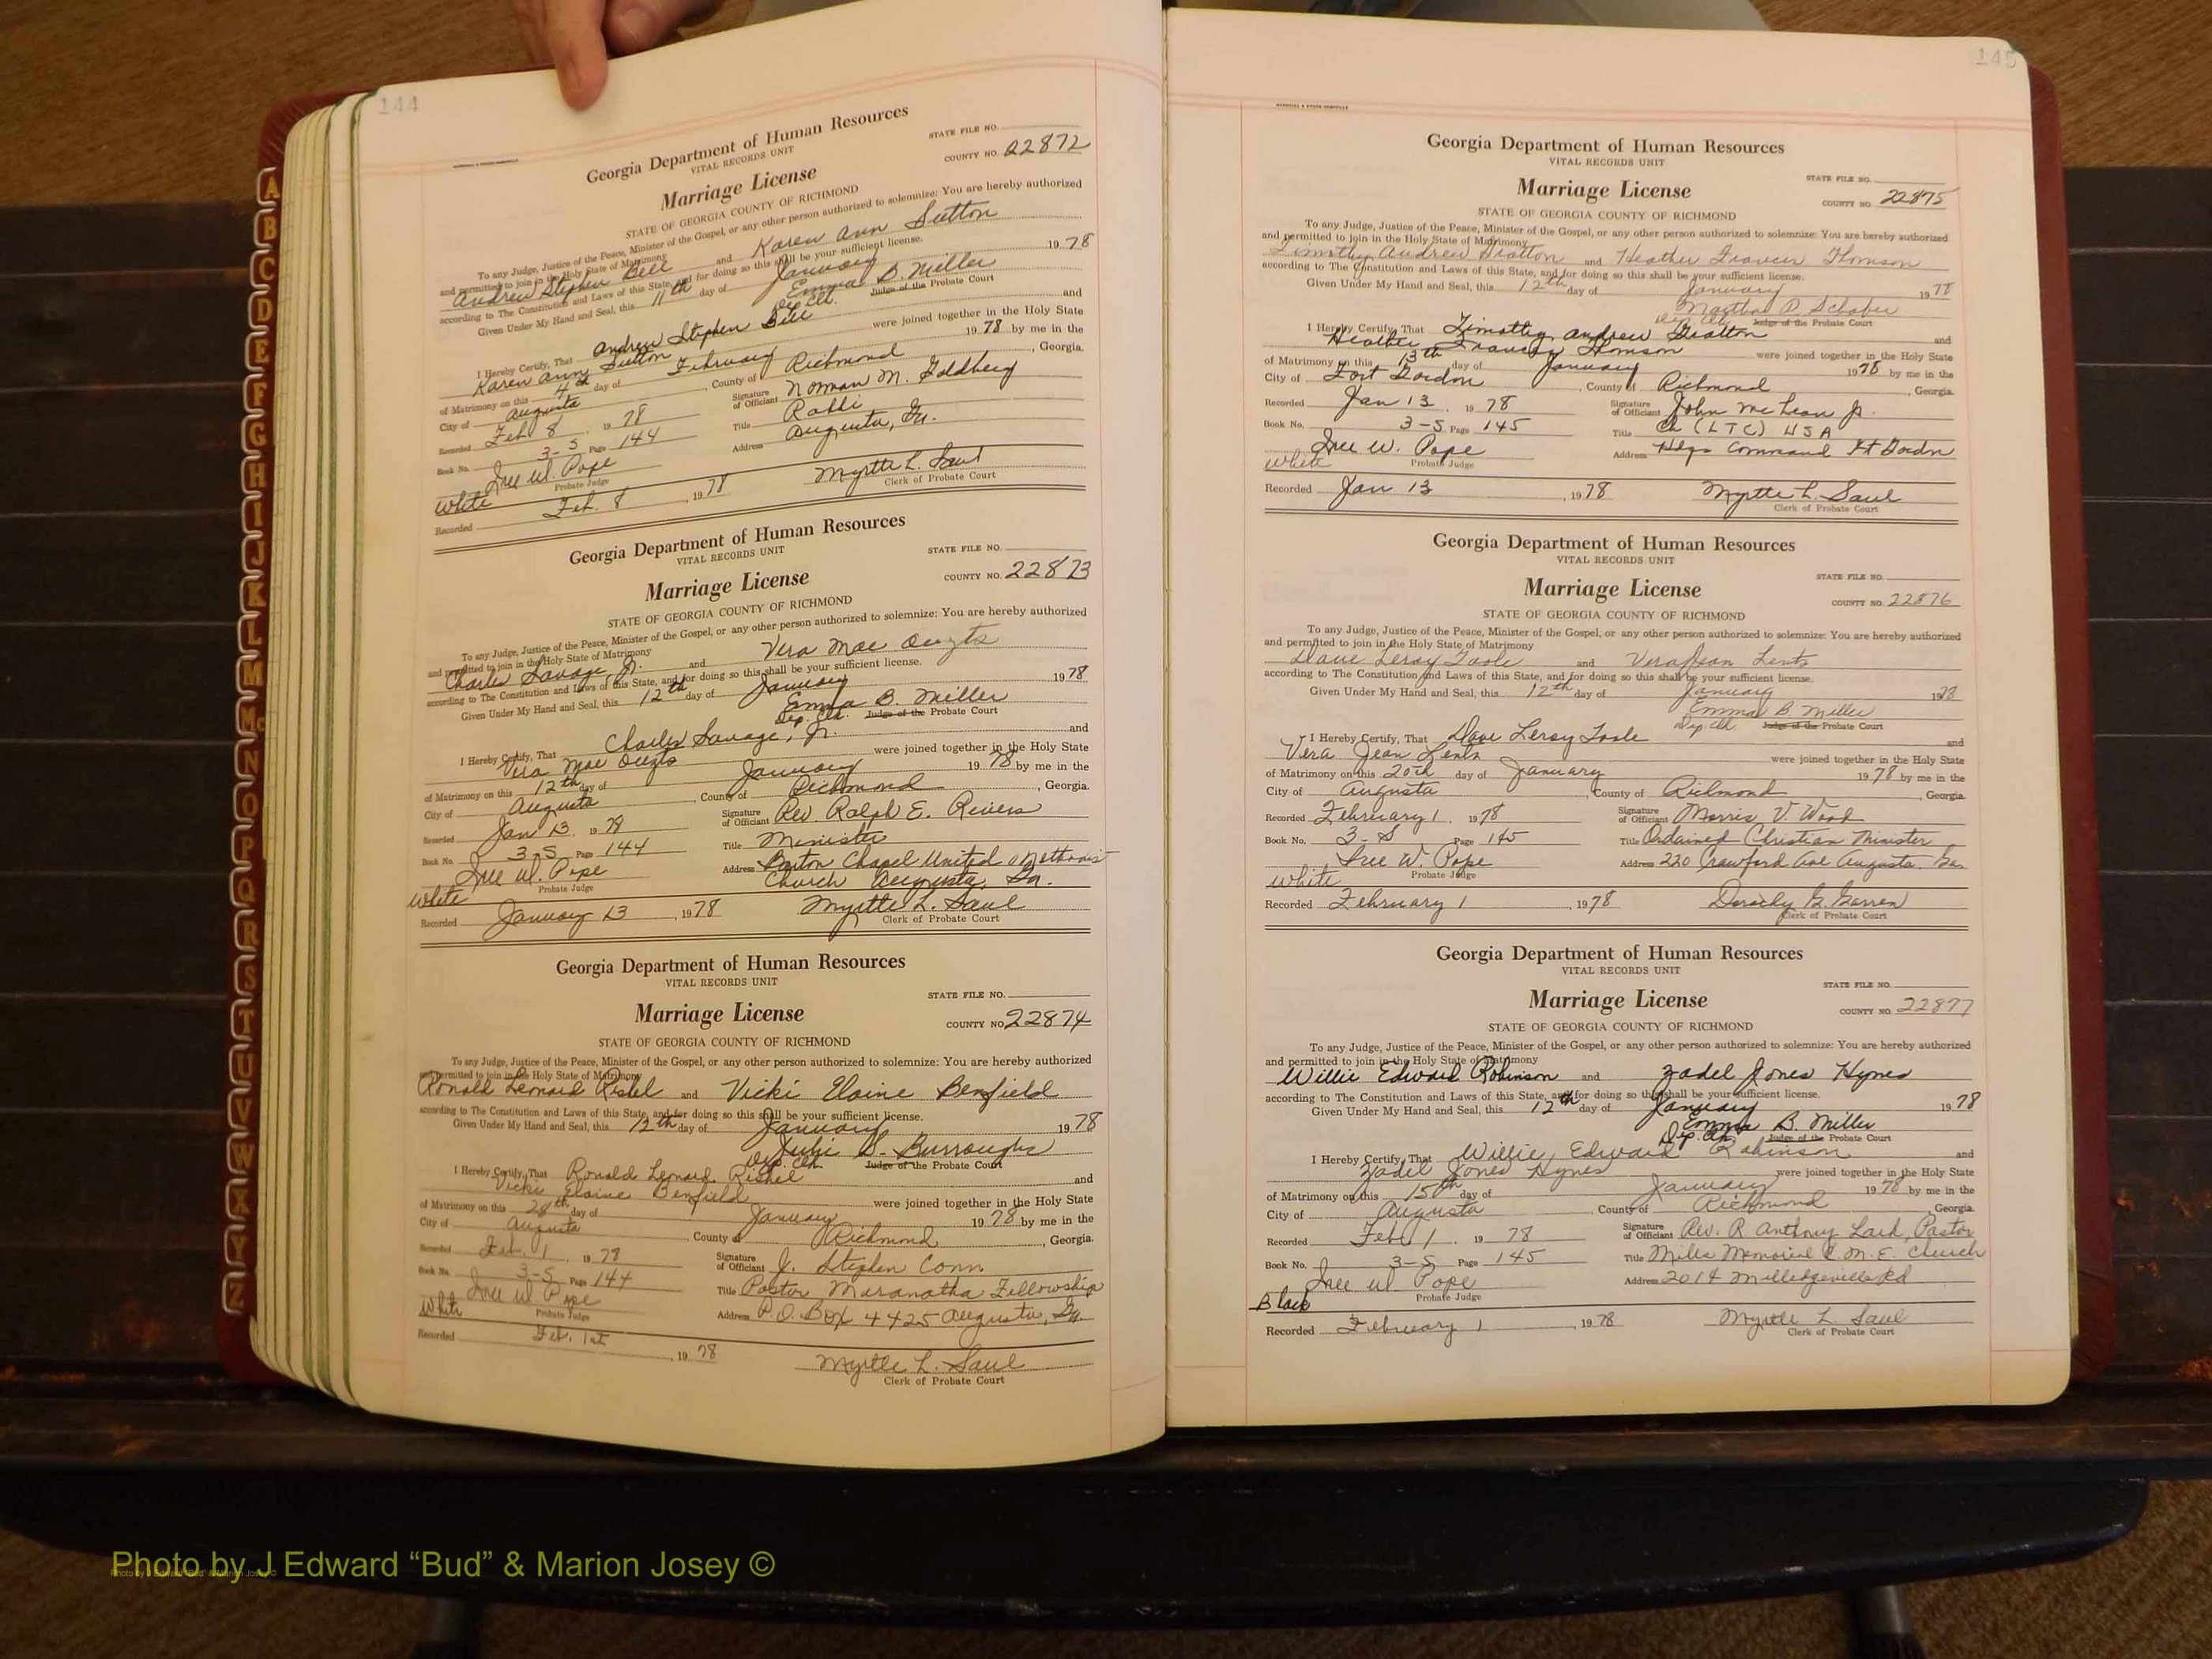 144
Georgia Department of Human Resources
VITAL RECORDS UNIT
STATE FILE NO.
Marriage License
COUNTY NO. 22872
STATE OF GEORGIA COUNTY OF RICHMOND
To any Judge, Justice of the Peace, Minister of the Gospel, or any other person authorized to solemnize: You are hereby authorized
and permitted to join in the Holy State of Matrimony
Andrew Stephen Bell and Karen Ann Sutton
according to The Constitution and Laws of this State, and for doing so this shall be your sufficient license.
Given Under My Hand and Seal, this 11th day of January 1978
Emma B. Miller
Dep. Clk. Judge of the Probate Court
I Hereby Certify, That Andrew Stephen Bell and
Karen Ann Sutton were joined together in the Holy State
of Matrimony on this 4th day of February 1978 by me in the
City of Augusta, County of Richmond, Georgia.
Recorded Feb 8, 1978 Signature of Officiant Norman M. Goldberg
Book No. 3-S Page 144 Title Rabbi
Address Augusta, Ga.
W. Pope
Probate Judge
White
Recorded Feb. 8, 1978 Myrtle L. Saul
Clerk of Probate Court
Georgia Department of Human Resources
VITAL RECORDS UNIT
STATE FILE NO.
Marriage License
COUNTY NO. 22873
STATE OF GEORGIA COUNTY OF RICHMOND
To any Judge, Justice of the Peace, Minister of the Gospel, or any other person authorized to solemnize: You are hereby authorized
and permitted to join in the Holy State of Matrimony
Charles Savage, Jr. and Vera Mae Ouzts
according to The Constitution and Laws of this State, and for doing so this shall be your sufficient license.
Given Under My Hand and Seal, this 12th day of January 1978
Emma B. Miller
Dep. Clk. Judge of the Probate Court
I Hereby Certify, That Charles Savage, Jr. and
Vera Mae Ouzts were joined together in the Holy State
of Matrimony on this 12th day of January 1978 by me in the
City of Augusta, County of Richmond, Georgia.
Recorded Jan 13, 1978 Signature of Officiant Rev. Ralph E. Rivers
Book No. 3-S Page 144 Title Minister
Address Barton Chapel United Methodist
Church Augusta, Ga.
W. Pope
Probate Judge
White
Recorded January 13, 1978 Myrtle L. Saul
Clerk of Probate Court
Georgia Department of Human Resources
VITAL RECORDS UNIT
STATE FILE NO.
Marriage License
COUNTY NO. 22874
STATE OF GEORGIA COUNTY OF RICHMOND
To any Judge, Justice of the Peace, Minister of the Gospel, or any other person authorized to solemnize: You are hereby authorized
and permitted to join in the Holy State of Matrimony
Ronald Leonard Rishel and Vicki Elaine Benfield
according to The Constitution and Laws of this State, and for doing so this shall be your sufficient license.
Given Under My Hand and Seal, this 12th day of January 1978
Juli S. Burroughs
Dep. Clk. Judge of the Probate Court
I Hereby Certify, That Ronald Leonard Rishel and
Vicki Elaine Benfield were joined together in the Holy State
of Matrimony on this 28th day of January 1978 by me in the
City of Augusta, County of Richmond, Georgia.
Recorded Feb. 1, 1978 Signature of Officiant J. Stephen Conn
Book No. 3-S Page 144 Title Pastor Maranatha Fellowship
Address P.O. Box 4425 Augusta, Ga.
W Pope
Probate Judge
White
Recorded Feb. 1st, 1978 Myrtle L. Saul
Clerk of Probate Court
145
Georgia Department of Human Resources
VITAL RECORDS UNIT
STATE FILE NO.
Marriage License
COUNTY NO. 22875
STATE OF GEORGIA COUNTY OF RICHMOND
To any Judge, Justice of the Peace, Minister of the Gospel, or any other person authorized to solemnize: You are hereby authorized
and permitted to join in the Holy State of Matrimony
Timothy Andrew Bratton and Heather Frances Thomson
according to The Constitution and Laws of this State, and for doing so this shall be your sufficient license.
Given Under My Hand and Seal, this 12th day of January 1978
Martha D. Schaber
Dep Clk Judge of the Probate Court
I Hereby Certify, That Timothy Andrew Bratton and
Heather Frances Thomson were joined together in the Holy State
of Matrimony on this 13th day of January 1978 by me in the
City of Fort Gordon, County of Richmond, Georgia.
Recorded Jan 13, 1978 Signature of Officiant John McLean Jr.
Book No. 3-S Page 145 Title Ch (LTC) USA
Address Hdqs Command Ft Gordon
W. Pope
Probate Judge
White
Recorded Jan 13, 1978 Myrtle L. Saul
Clerk of Probate Court
Georgia Department of Human Resources
VITAL RECORDS UNIT
STATE FILE NO.
Marriage License
COUNTY NO. 22876
STATE OF GEORGIA COUNTY OF RICHMOND
To any Judge, Justice of the Peace, Minister of the Gospel, or any other person authorized to solemnize: You are hereby authorized
and permitted to join in the Holy State of Matrimony
Dave Leroy Toole and Vera Jean Lentz
according to The Constitution and Laws of this State, and for doing so this shall be your sufficient license.
Given Under My Hand and Seal, this 12th day of January 1978
Emma B Miller
Dep Clk Judge of the Probate Court
I Hereby Certify, That Dave Leroy Toole and
Vera Jean Lentz were joined together in the Holy State
of Matrimony on this 20th day of January 1978 by me in the
City of Augusta, County of Richmond, Georgia.
Recorded February 1, 1978 Signature of Officiant Morris V. Wood
Book No. 3-S Page 145 Title Ordained Christian Minister
W. Pope Address 220 Crawford Ave Augusta, Ga.
Probate Judge
White
Recorded February 1, 1978 Dorothy G. Garren
Clerk of Probate Court
Georgia Department of Human Resources
VITAL RECORDS UNIT
STATE FILE NO.
Marriage License
COUNTY NO. 22877
STATE OF GEORGIA COUNTY OF RICHMOND
To any Judge, Justice of the Peace, Minister of the Gospel, or any other person authorized to solemnize: You are hereby authorized
and permitted to join in the Holy State of Matrimony
Willie Edward Robinson and Zadel Jones Hynes
according to The Constitution and Laws of this State, and for doing so this shall be your sufficient license.
Given Under My Hand and Seal, this 12th day of January 1978
Emma B. Miller
Dep. Clk Judge of the Probate Court
I Hereby Certify, That Willie Edward Robinson and
Zadel Jones Hynes were joined together in the Holy State
of Matrimony on this 15th day of January 1978 by me in the
City of Augusta, County of Richmond, Georgia.
Recorded Feb 1, 1978 Signature of Officiant Rev. R Anthony Lark, Pastor
Book No. 3-S Page 145 Title Miles Memorial C.M.E. Church
W Pope Address 2014 Milledgeville Rd
Probate Judge
Black
Recorded February 1, 1978 Myrtle L. Saul
Clerk of Probate Court
A
B
C
D
E
F
G
H
I
J
K
L
M
Mc
N
O
P
Q
R
S
T
U
V
W
X
Y
Z
Photo by J Edward “Bud” & Marion Josey ©
Photo by J Edward "Bud" & Marion Josey ©